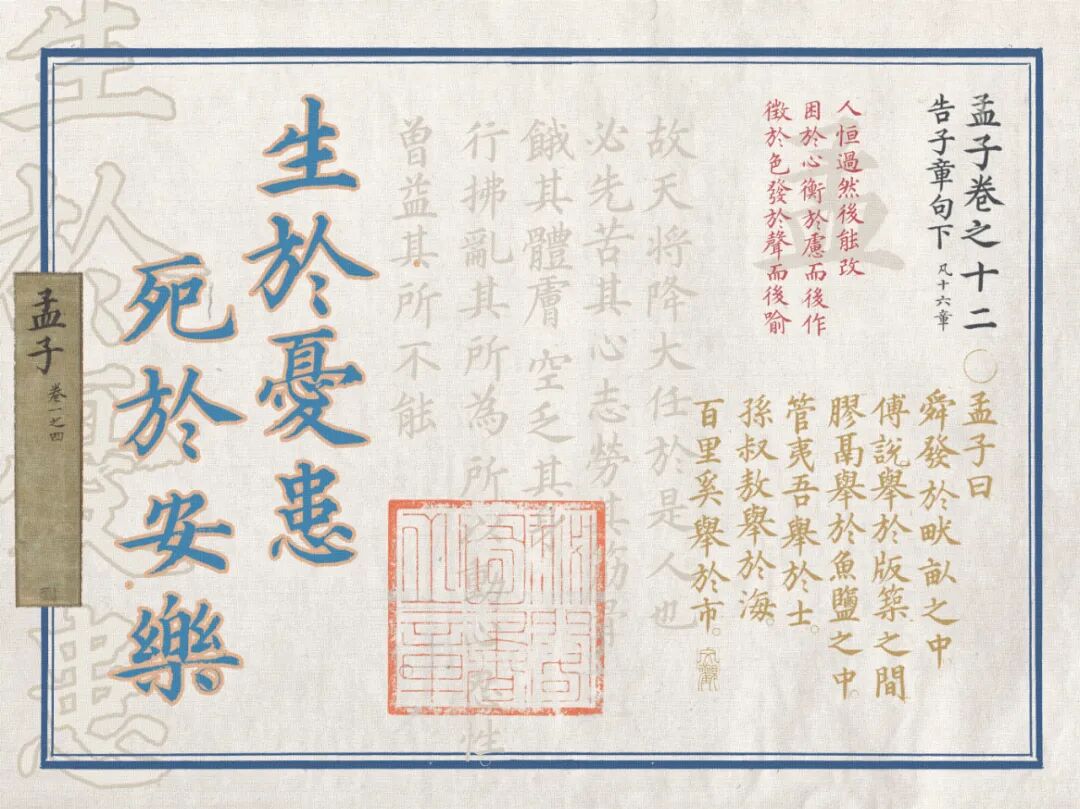 孟子卷之十二
告子章句下 凡十六章
人恒過然後能改
困於心衡於慮而後作
徵於色發於聲而後喻
孟
〇孟子曰
舜發於畎畝之中
傅說舉於版築之間
膠鬲舉於魚鹽之中。
管夷吾舉於士。
孫叔敖舉於海。
百里奚舉於市。
故天將降大任於是人也
必先苦其心志勞其筋骨
餓其體膚空乏其身
行拂亂其所為所以動心忍性
曾益其所不能
生於憂患
死於安樂
孟子
卷一之四
生於憂患